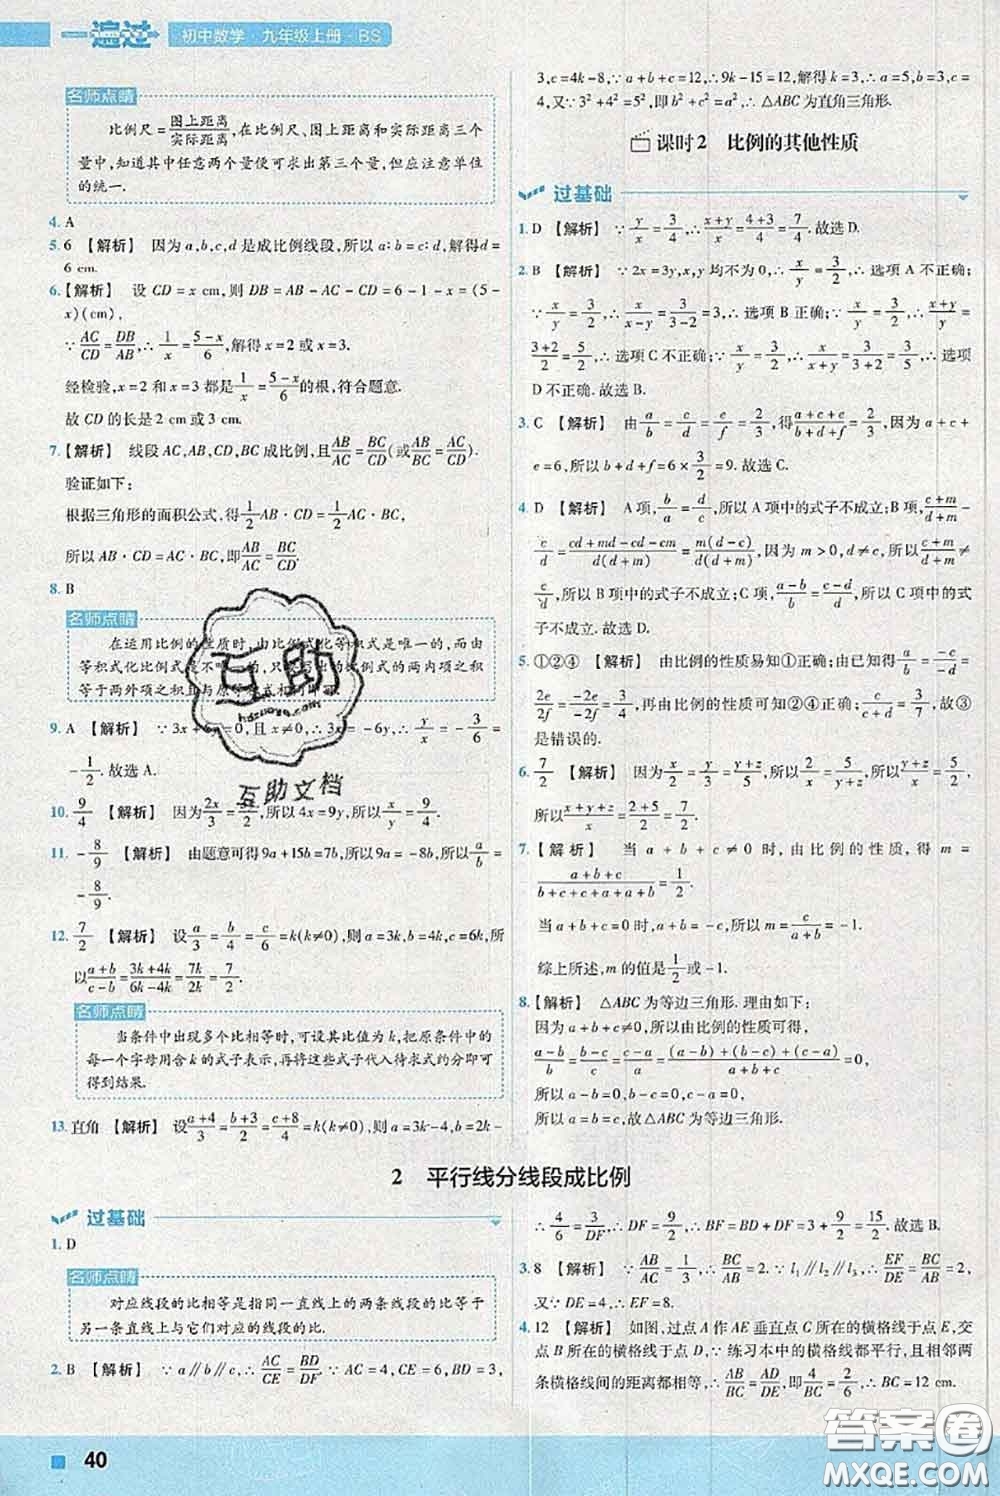 一遍过 初中数学·九年级上册·BS
名师点睛
比例尺=图上距离/实际距离,在比例尺、图上距离和实际距离三个
量中,知道其中任意两个量便可求出第三个量,但应注意单位
的统一.
4. A
5. 6 【解析】 因为a,b,c,d是成比例线段,所以a:b=c:d,解得d=
6 cm.
6.【解析】 设CD=x cm,则DB=AB-AC-CD=6-1-x=(5-
x)(cm),
∵AC/CD=DB/AB,∴1/x=(5-x)/6,解得x=2或x=3.
经检验,x=2和x=3都是1/x=(5-x)/6的根,符合题意.
故CD的长是2 cm或3 cm.
7.【解析】 线段AC,AB,CD,BC成比例,且AB/AC=BC/CD(或AB/BC=AC/CD).
验证如下:
根据三角形的面积公式,得1/2AB·CD=1/2AC·BC,
所以AB·CD=AC·BC,即AB/AC=BC/CD.
8. B
名师点睛
在运用比例的性质时,由比例式化等积式是唯一的,而由
等积式化比例式是不唯一的,只要写出的比例式的两内项之积
等于两外项之积且与原等积式相同即可.
9. A 【解析】 ∵3x+6y=0,且x≠0,∴3x=-6y,∴y/x=-3/6=
-1/2.故选A.
10. 9/4 【解析】 因为2x/3=3y/2,所以4x=9y,所以x/y=9/4.
11. -8/9 【解析】 由题意可得9a+15b=7b,所以9a=-8b,所以a/b=
-8/9.
12. 7/2 【解析】 设a/3=b/4=c/6=k(k≠0),则a=3k,b=4k,c=6k,所
以(a+b)/(c-b)=(3k+4k)/(6k-4k)=7k/2k=7/2.
名师点睛
当条件中出现多个比相等时,可设其比值为k,把原条件中的
每一个字母用含k的式子表示,再将这些式子代入待求式约分即可
得到结果.
13. 直角 【解析】 设(a+4)/3=(b+3)/2=(c+8)/4=k(k≠0),则a=3k-4,b=2k-
3,c=4k-8,∵a+b+c=12,∴9k-15=12,解得k=3,∴a=5,b=3,c=
4,又∵3²+4²=5²,即b²+c²=a²,∴△ABC为直角三角形.
课时2 比例的其他性质
过基础
1. D 【解析】 ∵x/y=3/4,∴(x+y)/y=(4+3)/4=7/4.故选D.
2. B 【解析】 ∵2x=3y,x,y均不为0,∴x/y=3/2,∴选项A不正确;
∵x/y=3/2,∴x/(x-y)=3/(3-2)=3,∴选项B正确;∵x/y=3/2,∴(x+y)/y=
(3+2)/2=5/2,∴选项C不正确;∵x/y=3/2,∴x/(x+y)=3/(3+2)=3/5,∴选项
D不正确.故选B.
3. C 【解析】 由a/b=c/d=e/f=2/3,得(a+c+e)/(b+d+f)=2/3.因为a+c+
e=6,所以b+d+f=6×3/2=9.故选C.
4. D 【解析】 A项,b/a=d/c,所以A项中的式子不成立;B项,(c+m)/(d+m)-
c/d=(cd+md-cd-cm)/(d(d+m))=m(d-c)/(d(d+m)).因为m>0,d≠c,所以(c+m)/(d+m)≠
c/d,所以B项中的式子不成立;C项,(a-b)/b=(c-d)/d,所以C项中的式子
不成立.故选D.
5. ①②④ 【解析】 由比例的性质易知①正确;由已知得a/b=-c/-d=
2e/2f=-2e/-2f=3/4,再由比例的性质可知②④正确,c/(c+d)=3/7,故③
是错误的.
6. 7/2 【解析】 因为x/2=y/3=(y+z)/5,所以2/x=5/(y+z),所以(y+z)/x=5/2,
所以(x+y+z)/x=(2+5)/2=7/2.
7.【解析】 当a+b+c≠0时,由比例的性质,得m=
(a+b+c)/(b+c+c+a+a+b)=1/2.
当a+b+c=0时,a+b=-c,所以m=c/(a+b)=-1.
综上所述,m的值是1/2或-1.
8.【解析】 △ABC为等边三角形.理由如下:
因为a+b+c≠0,所以由比例的性质可得,
(a-b)/b=(b-c)/c=(c-a)/a=((a-b)+(b-c)+(c-a))/(a+b+c)=0,
所以a-b=0,b-c=0,c-a=0,
所以a=b=c,故△ABC为等边三角形.
2 平行线分线段成比例
过基础
1. D
名师点睛
对应线段的比相等是指同一直线上的两条线段的比等于
另一条直线上与它们对应的线段的比.
2. B 【解析】 ∵a∥b∥c,∴AC/CE=BD/DF.∵AC=4,CE=6,BD=3,
∴4/6=3/DF,∴DF=9/2,∴BF=BD+DF=3+9/2=15/2.故选B.
3. 8 【解析】 ∵AB/AC=1/3,∴BC/AB=2,∵l₁∥l₂∥l₃,∴EF/DE=BC/AB=2,
又∵DE=4,∴EF=8.
4. 12 【解析】 如图,过点A作AE垂直点C所在的横格线于点E,交
点B所在的横格线于点D.∵练习本中的横格线都平行,且相邻两
条横格线间的距离都相等,∴AB/BC=AD/DE,即4/BC=2/6,∴BC=12 cm.
40
互助
hdzuoye.com
互助文档
答案圈
MXQE.COM